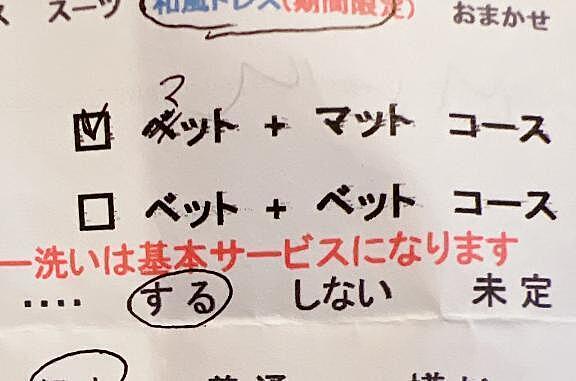 スーツ 和風ドレス(期間限定) おまかせ
☑ マット + マット コース
□ ベット + ベット コース
ー洗いは基本サービスになります
‥‥ する しない 未定
普通